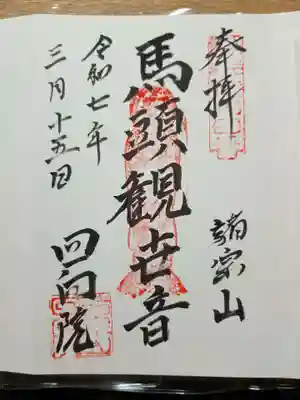 奉拝
諸宗山
馬頭観世音
回向院
令和七年
三月十五日